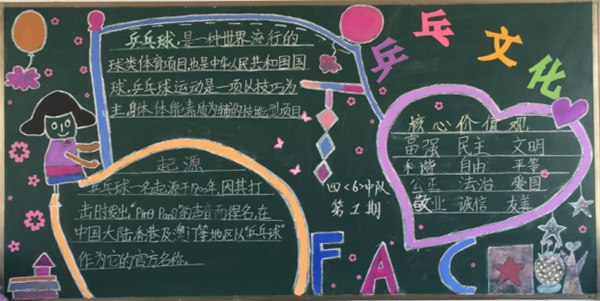 乒乓文化
乒乓球,是一种世界流行的
球类体育项目也是中华人民共和国国
球,乒乓球运动是一项以技巧为
主,身体体能素质为辅的技能型项目
起源
乒乓球一名起源于1900年,因其打
击时发出"Ping Pong"的声音而得名,在
中国大陆香港及澳门等地区以"乒乓球"
作为它的官方名称。
四<6>中队
第1期
核心价值观
富强 民主 文明
和谐 自由 平等
公正 法治 爱国
敬业 诚信 友善
FAC